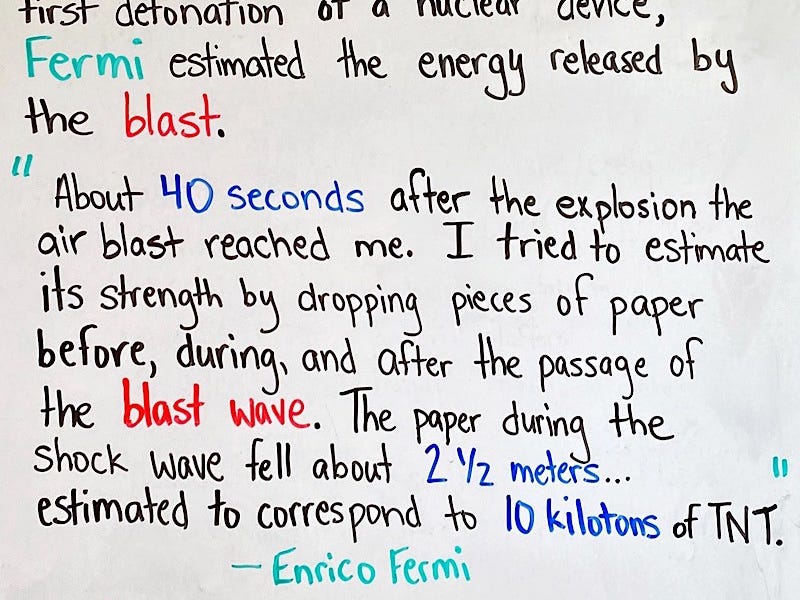 first detonation of a nuclear device,
Fermi estimated the energy released by
the blast.
"About 40 seconds after the explosion the
air blast reached me. I tried to estimate
its strength by dropping pieces of paper
before, during, and after the passage of
the blast wave. The paper during the
shock wave fell about 2 1/2 meters...
estimated to correspond to 10 kilotons of TNT."
— Enrico Fermi